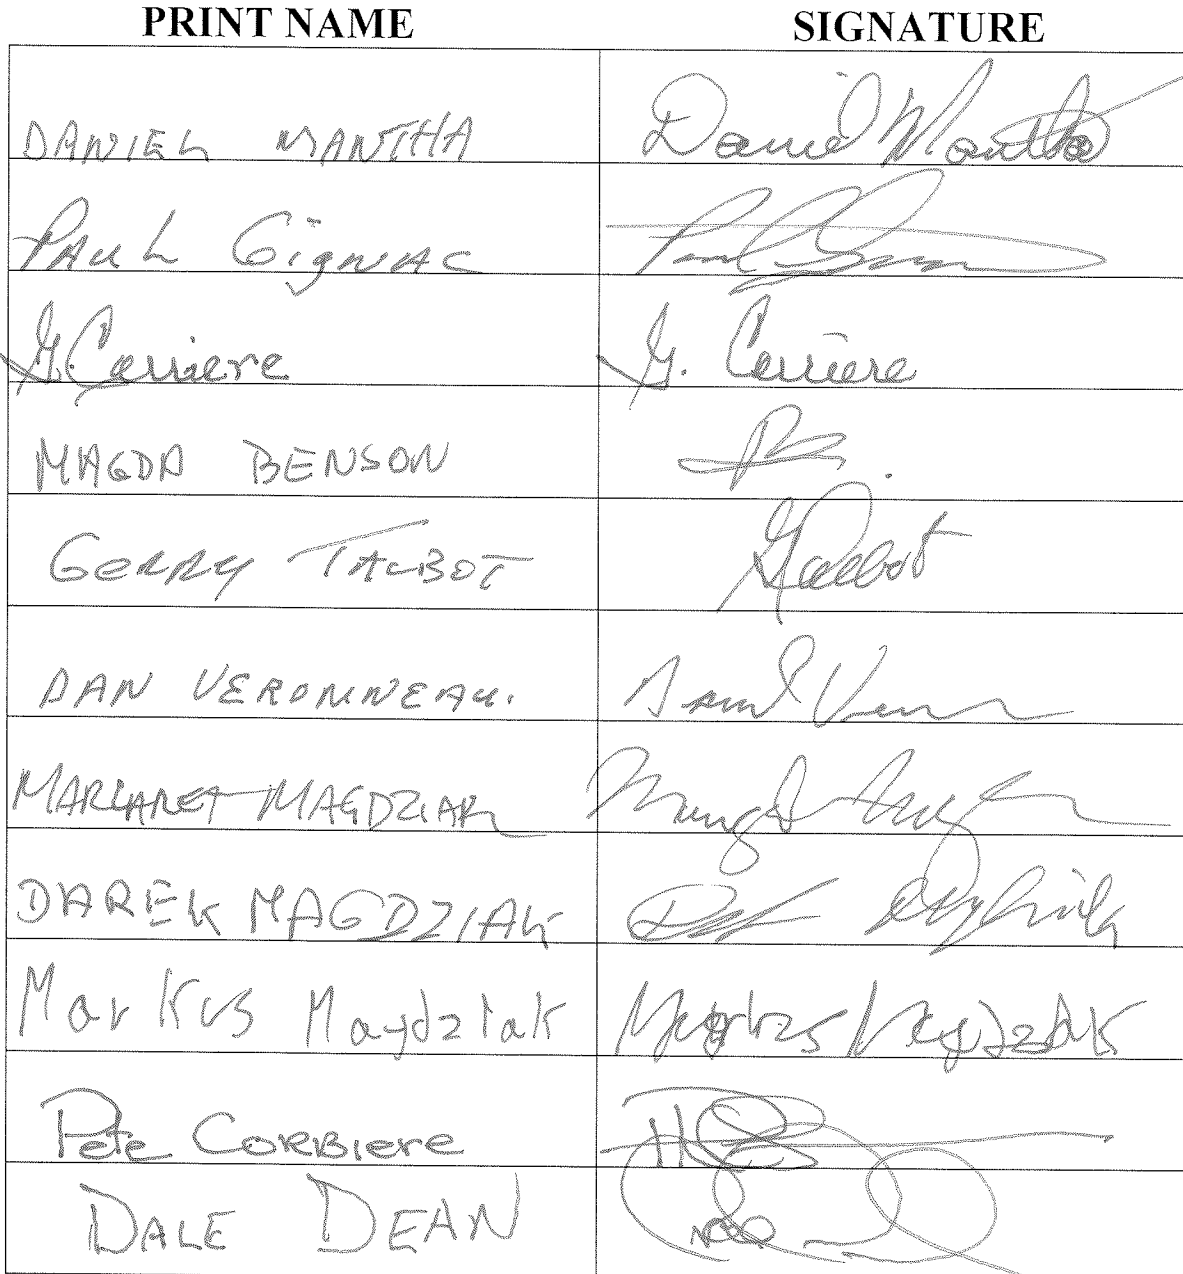 PRINT NAME SIGNATURE
DANIEL MANTHA Daniel Mantha
PAUL Gignac Paul
G. Carriere G. Carriere
MAGDA BENSON
GERRY TALBOT G Talbot
DAN VERONNEAU.
MARGARET MAGDZIAK
DAREK MAGDZIAK
Markus Magdziak Markus Magdziak
Pete CORBIERE
DALE DEAN